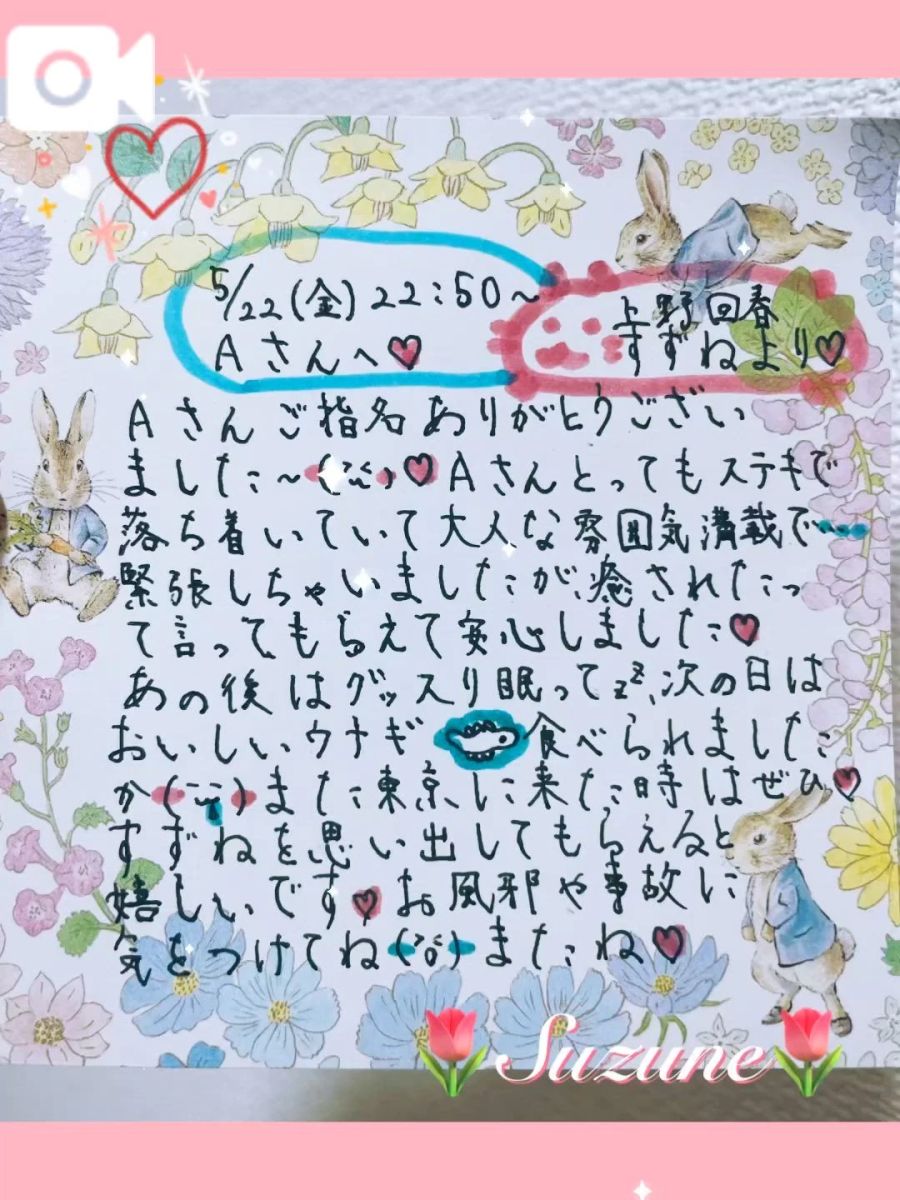 5/22(金)22:50~
Aさんへ♡
上野回春
すずねより♡
Aさんご指名ありがとうござい
ました~♡Aさんとってもステキで
落ち着いていて大人な雰囲気満載で…
緊張しちゃいましたが、癒されたっ
て言ってもらえて安心しました♡
あの後はグッスリ眠ってzzz、次の日は
おいしいウナギ食べられました
かまた東京に来た時はぜひ♡
すずねを思い出してもらえると
嬉しいです♡お風邪や事故に
気をつけてねまたね♡
Suzune